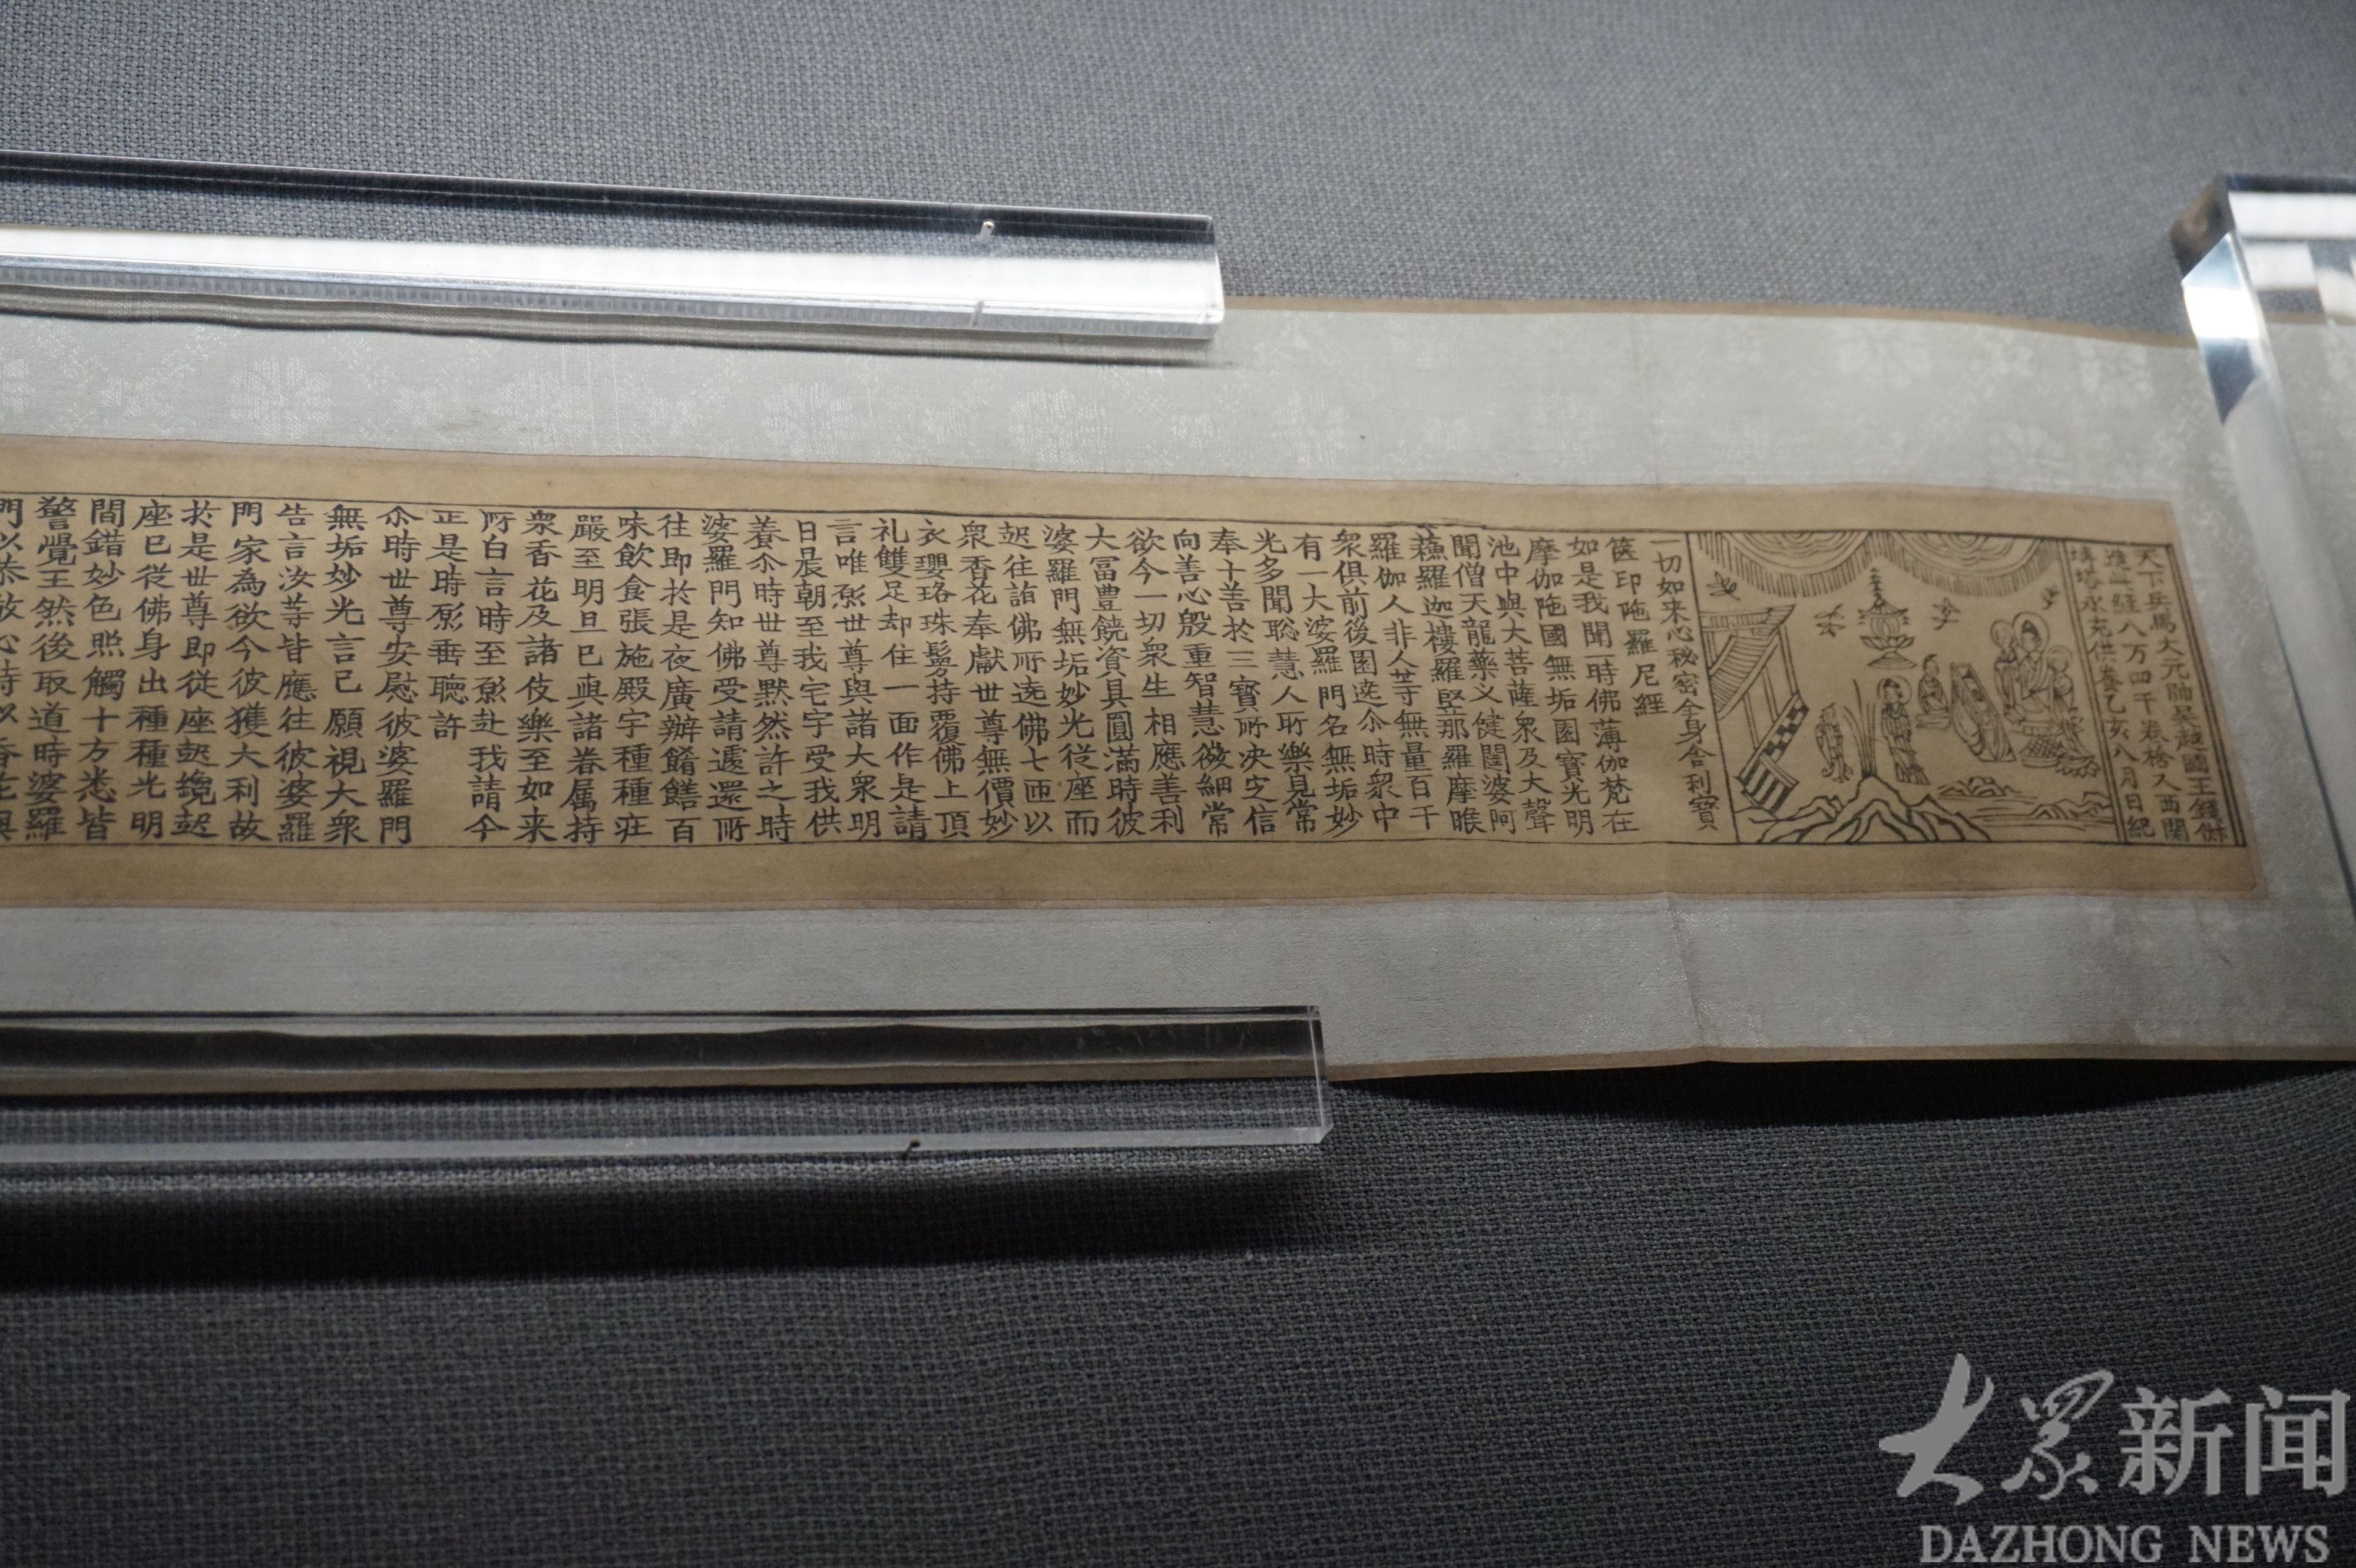 天下兵馬大元帥吳越國王錢俶
造此經八万四千卷捨入西關
塼塔永充供養乙亥八月日紀
一切如来心秘密全身舍利寶
篋印陁羅尼經
如是我聞一時佛薄伽梵在
摩伽陁國無垢園寶光明
池中與大菩薩衆及大聲
聞僧天龍藥叉健闥婆阿
蘓羅迦樓羅堅那羅摩睺
羅伽人非人等無量百千
衆俱前後圍遶尒時衆中
有一大婆羅門名無垢妙
光多聞聡慧人所樂見常
奉十善於三寶所决定信
向善心殷重智慧微細常
欲令一切衆生相應善利
大冨豊饒資具圓滿時彼
婆羅門無垢妙光從座而
起往詣佛所遶佛七匝以
衆香花奉獻世尊無價妙
衣瓔珞珠鬘持覆佛上頂
礼雙足却住一面作是請
言唯願世尊與諸大衆明
日晨朝至我宅宇受我供
養尒時世尊黙然許之時
婆羅門知佛受請遽還所
住即於是夜廣辦餚饍百
味飲食張施殿宇種種莊
嚴至明旦已與諸眷属持
衆香花及諸伎樂至如来
所白言時至願赴我請今
正是時願垂聴許
尒時世尊安慰彼婆羅門
無垢妙光言已顧視大衆
告言汝等皆應往彼婆羅
門家為欲令彼獲大利故
於是世尊即從座起纔起
座已從佛身出種種光明
間錯妙色照觸十方悉皆
警覺王然後取道時婆羅
門以恭敬心持以香花與
大眾新闻
DAZHONG NEWS